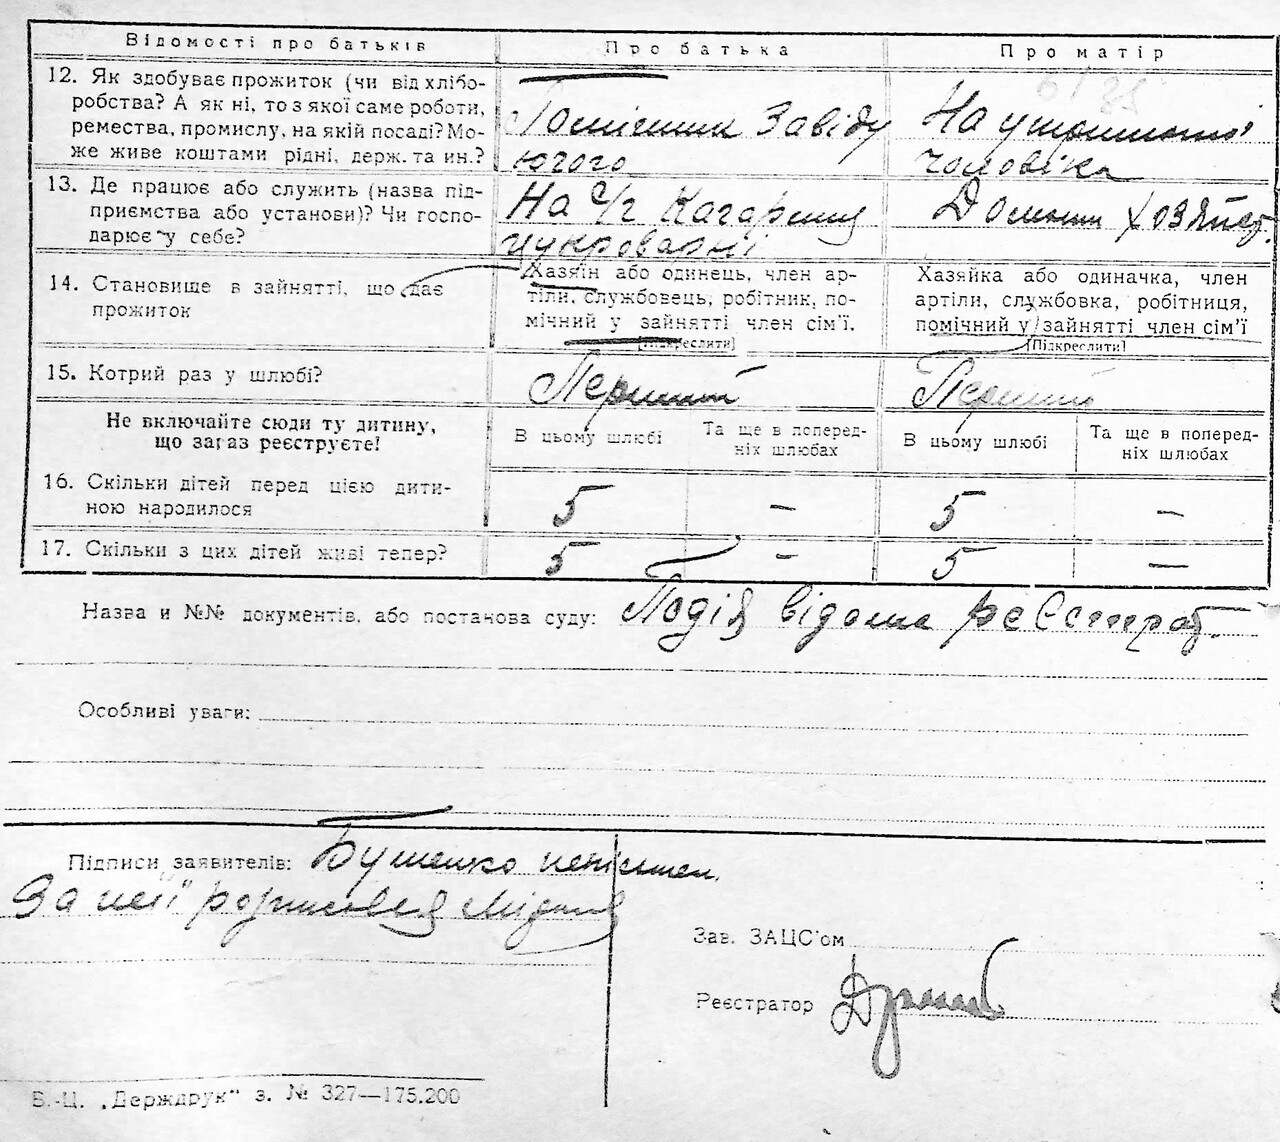 Відомості про батьків
Про батька
Про матір
12. Як здобуває прожиток (чи від хлібо-
робства? А як ні, то з якої саме роботи,
ремества, промислу, на якій посаді? Мо-
же живе коштами рідні, держ. та ин.?
Помічник Завіду
ючого
На утриманні
чоловіка
13. Де працює або служить (назва під-
приємства або установи)? Чи госпо-
дарює у себе?
На
цукроварні
Домашн хозяйст.
14. Становище в зайнятті, що дає
прожиток
Хазяїн або одинець, член ар-
тіли, службовець, робітник, по-
мічний у зайнятті член сім'ї.
[Підкреслити]
Хазяйка або одиначка, член
артіли, службовка, робітниця,
помічний у зайнятті член сім'ї
[Підкреслити]
15. Котрий раз у шлюбі?
Перший
Перший
Не включайте сюди ту дитину,
що зараз реєструєте!
В цьому шлюбі
Та ще в поперед-
ніх шлюбах
В цьому шлюбі
Та ще в попород-
ніх шлюбах
16. Скільки дітей перед цією дити-
ною народилося
5
–
5
–
17. Скільки з цих дітей живі тепер?
5
–
5
–
Назва и №№ документів, або постанова суду: Подія відома реєстрат.
Особливі уваги:
Підписи заявителів: Бушенко неписмен.
За неї росписався
Зав. ЗАЦС'ом
Реєстратор
Б.-Ц. „Держдрук" з. № 327—175.200